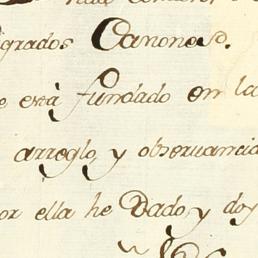 grados Canones.
e està fundado en la
arreglo, y observancia
or ella he Dado, y doy